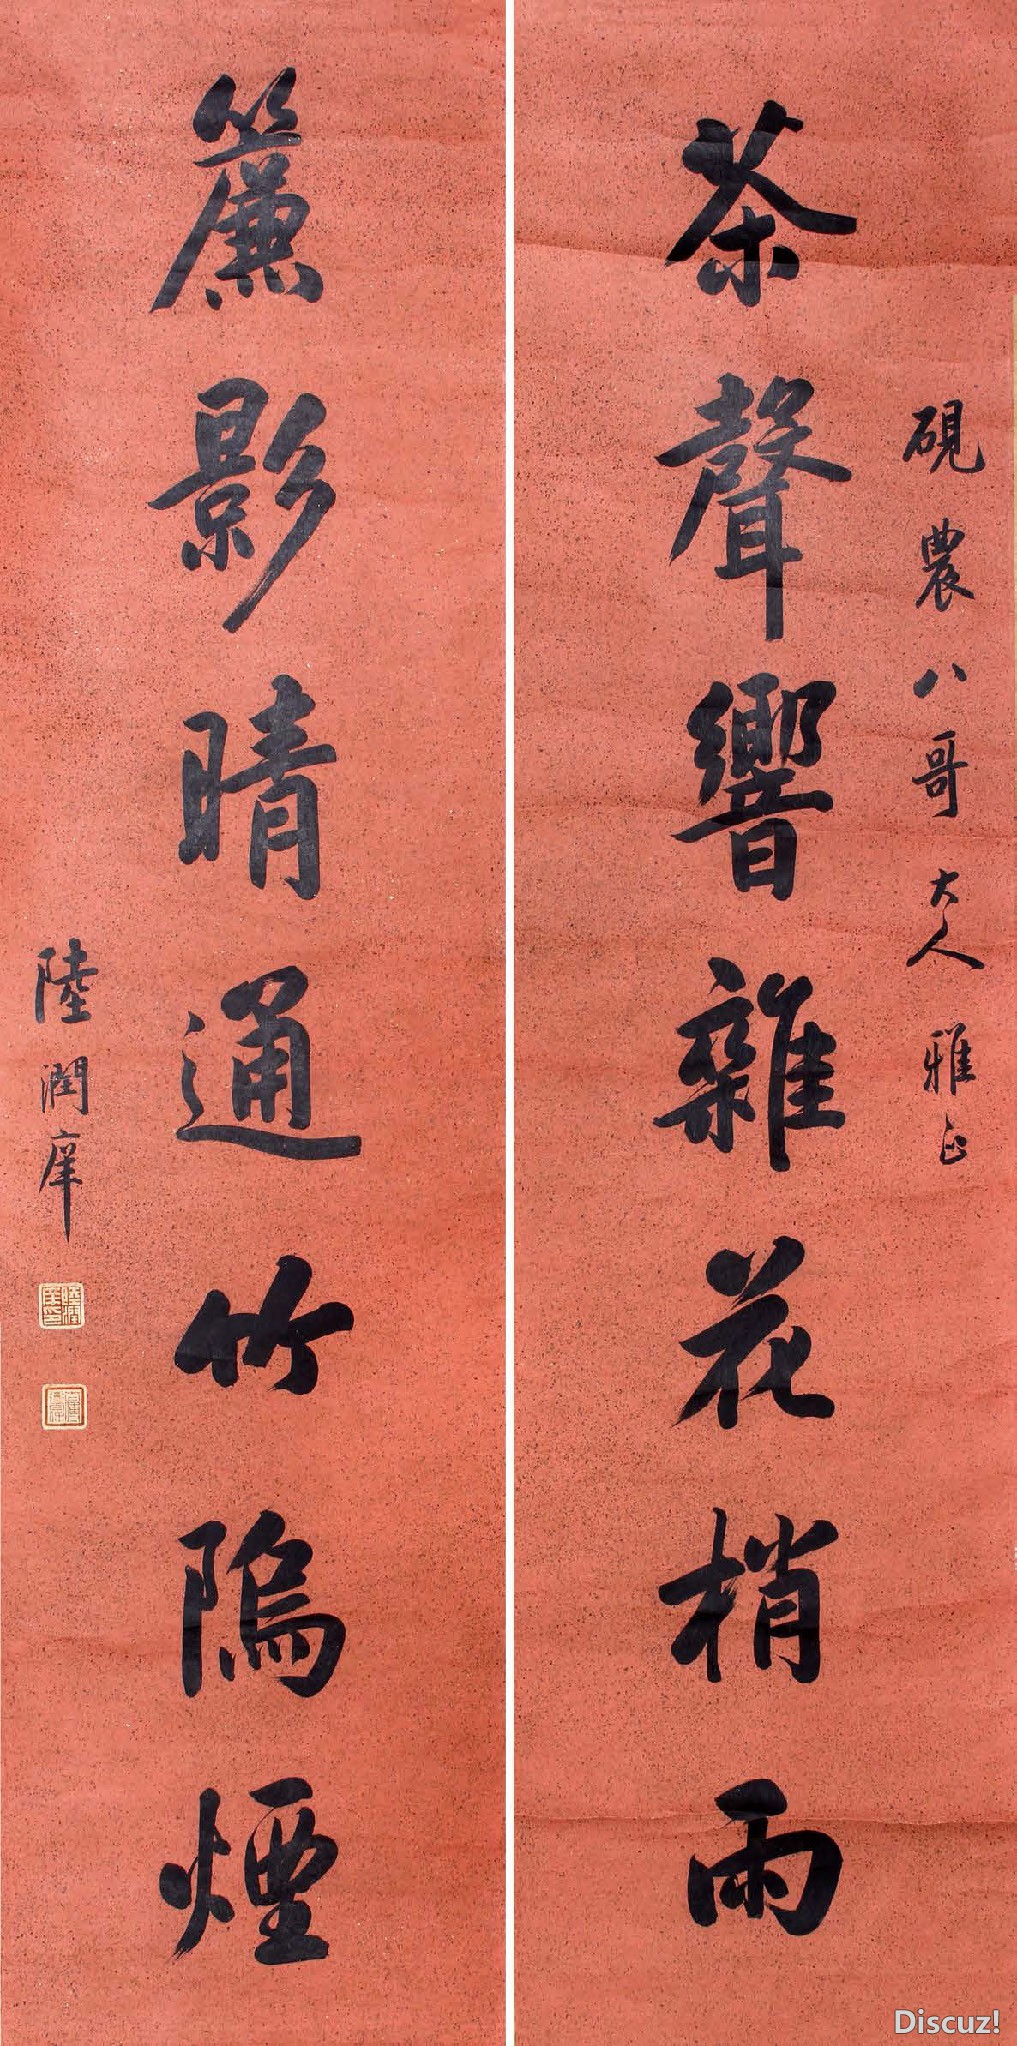 硯農八哥大人雅正
茶聲響雜花梢雨
簾影晴通竹隖煙
陸潤庠
陸潤庠印
Discuz!